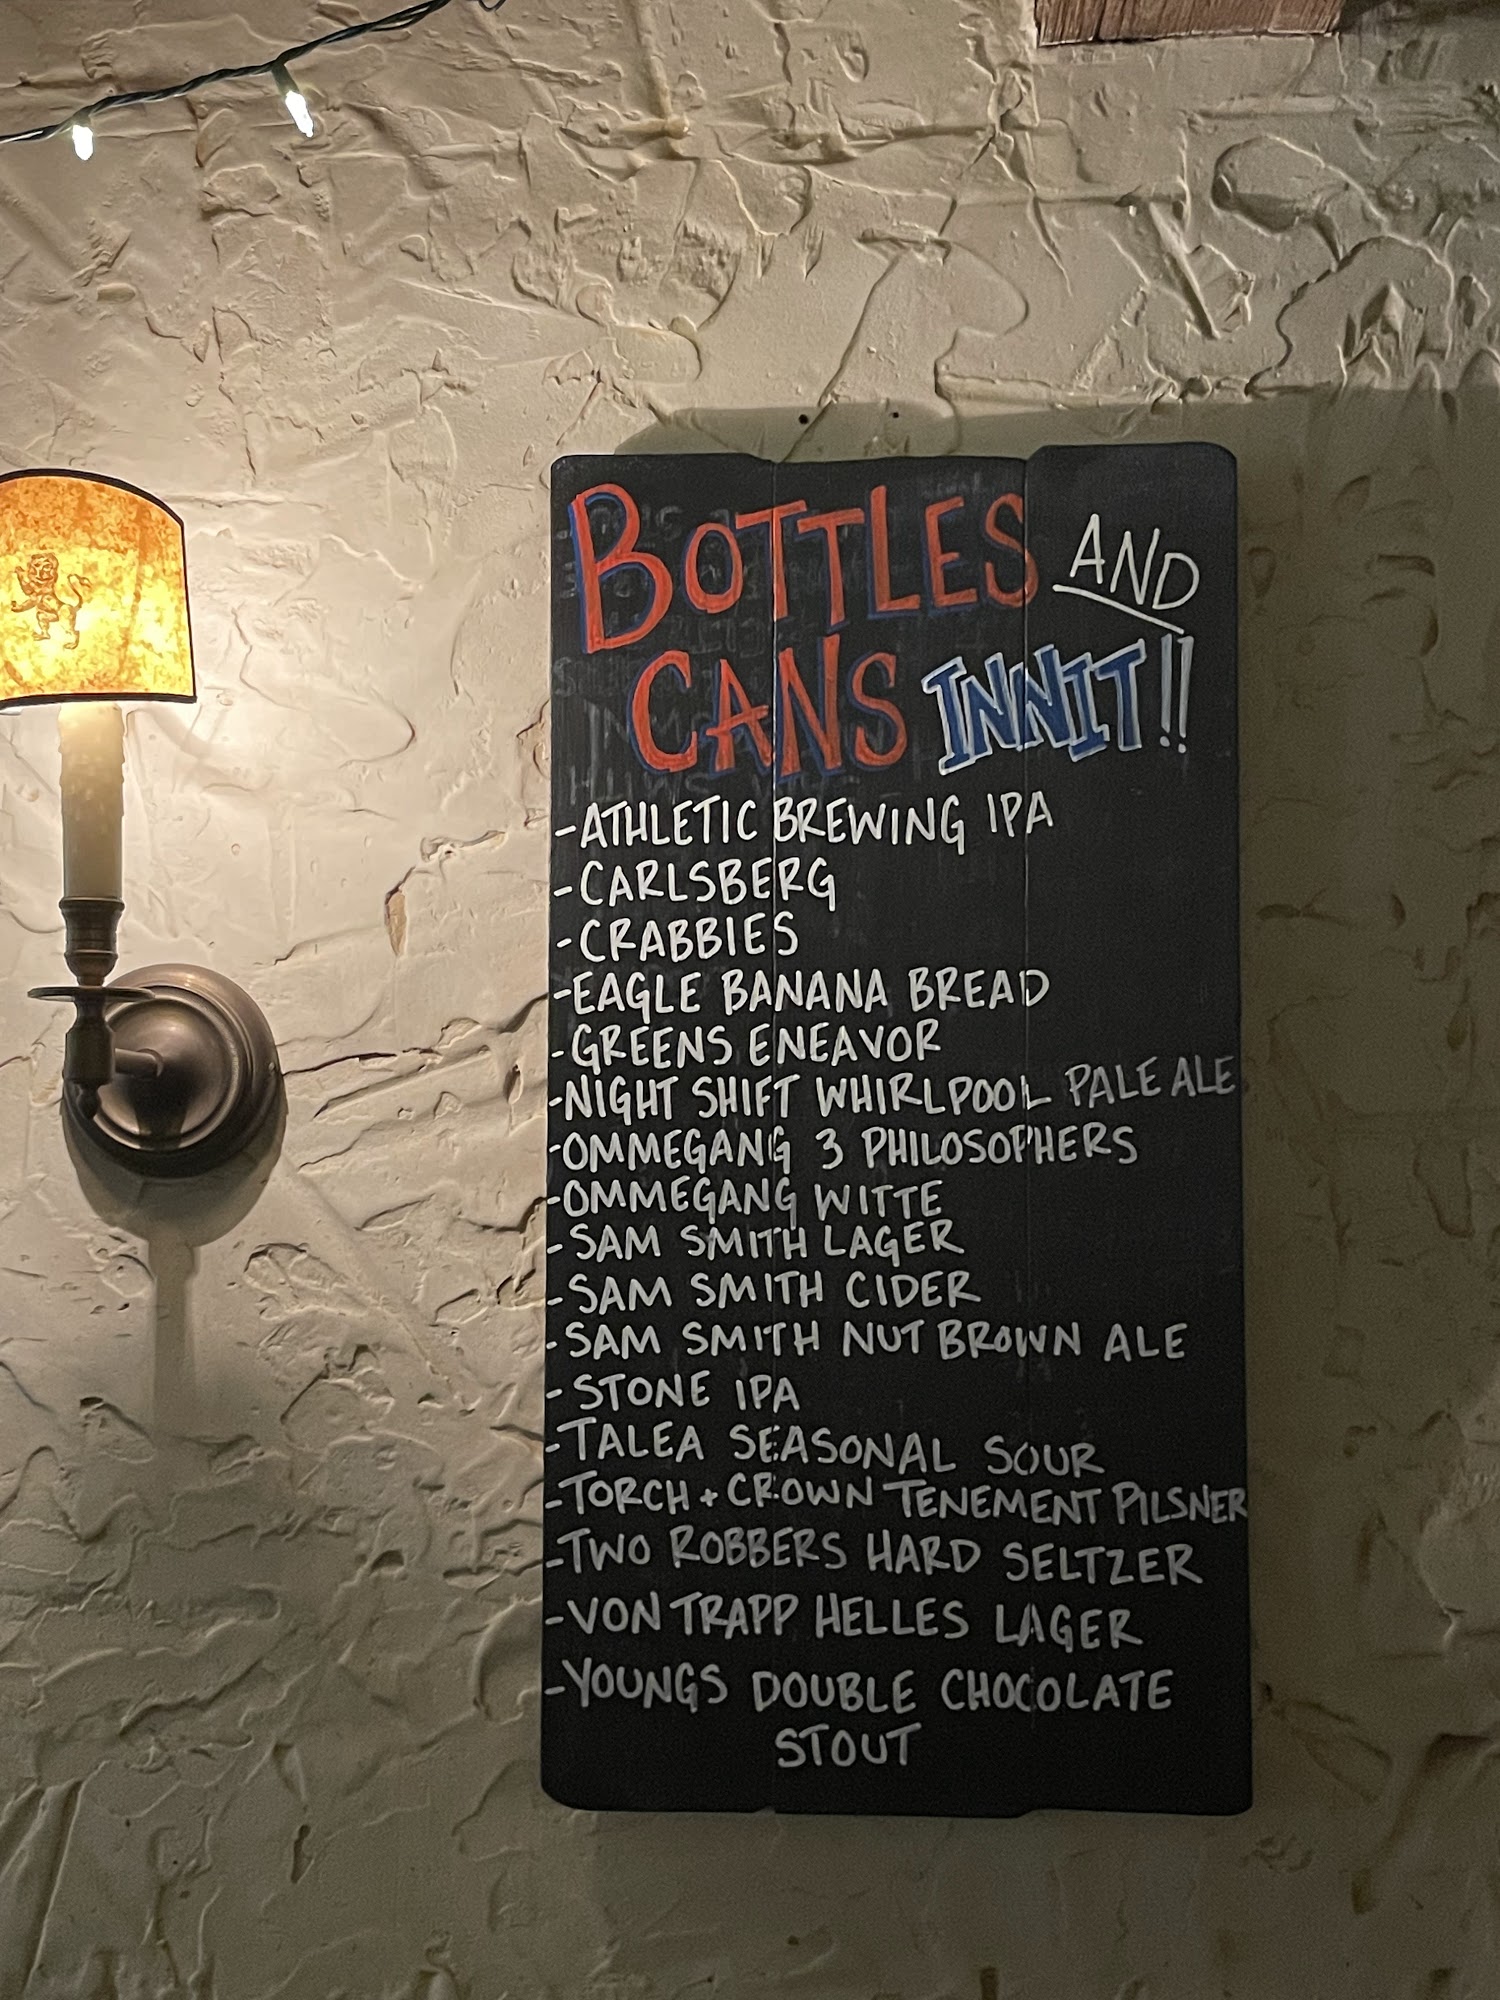 BOTTLES AND
CANS INNIT!!
-ATHLETIC BREWING IPA
-CARLSBERG
-CRABBIES
-EAGLE BANANA BREAD
-GREENS ENEAVOR
-NIGHT SHIFT WHIRLPOOL PALE ALE
-OMMEGANG 3 PHILOSOPHERS
-OMMEGANG WITTE
-SAM SMITH LAGER
-SAM SMITH CIDER
-SAM SMITH NUT BROWN ALE
-STONE IPA
-TALEA SEASONAL SOUR
-TORCH + CROWN TENEMENT PILSNER
-TWO ROBBERS HARD SELTZER
-VON TRAPP HELLES LAGER
-YOUNGS DOUBLE CHOCOLATE
STOUT